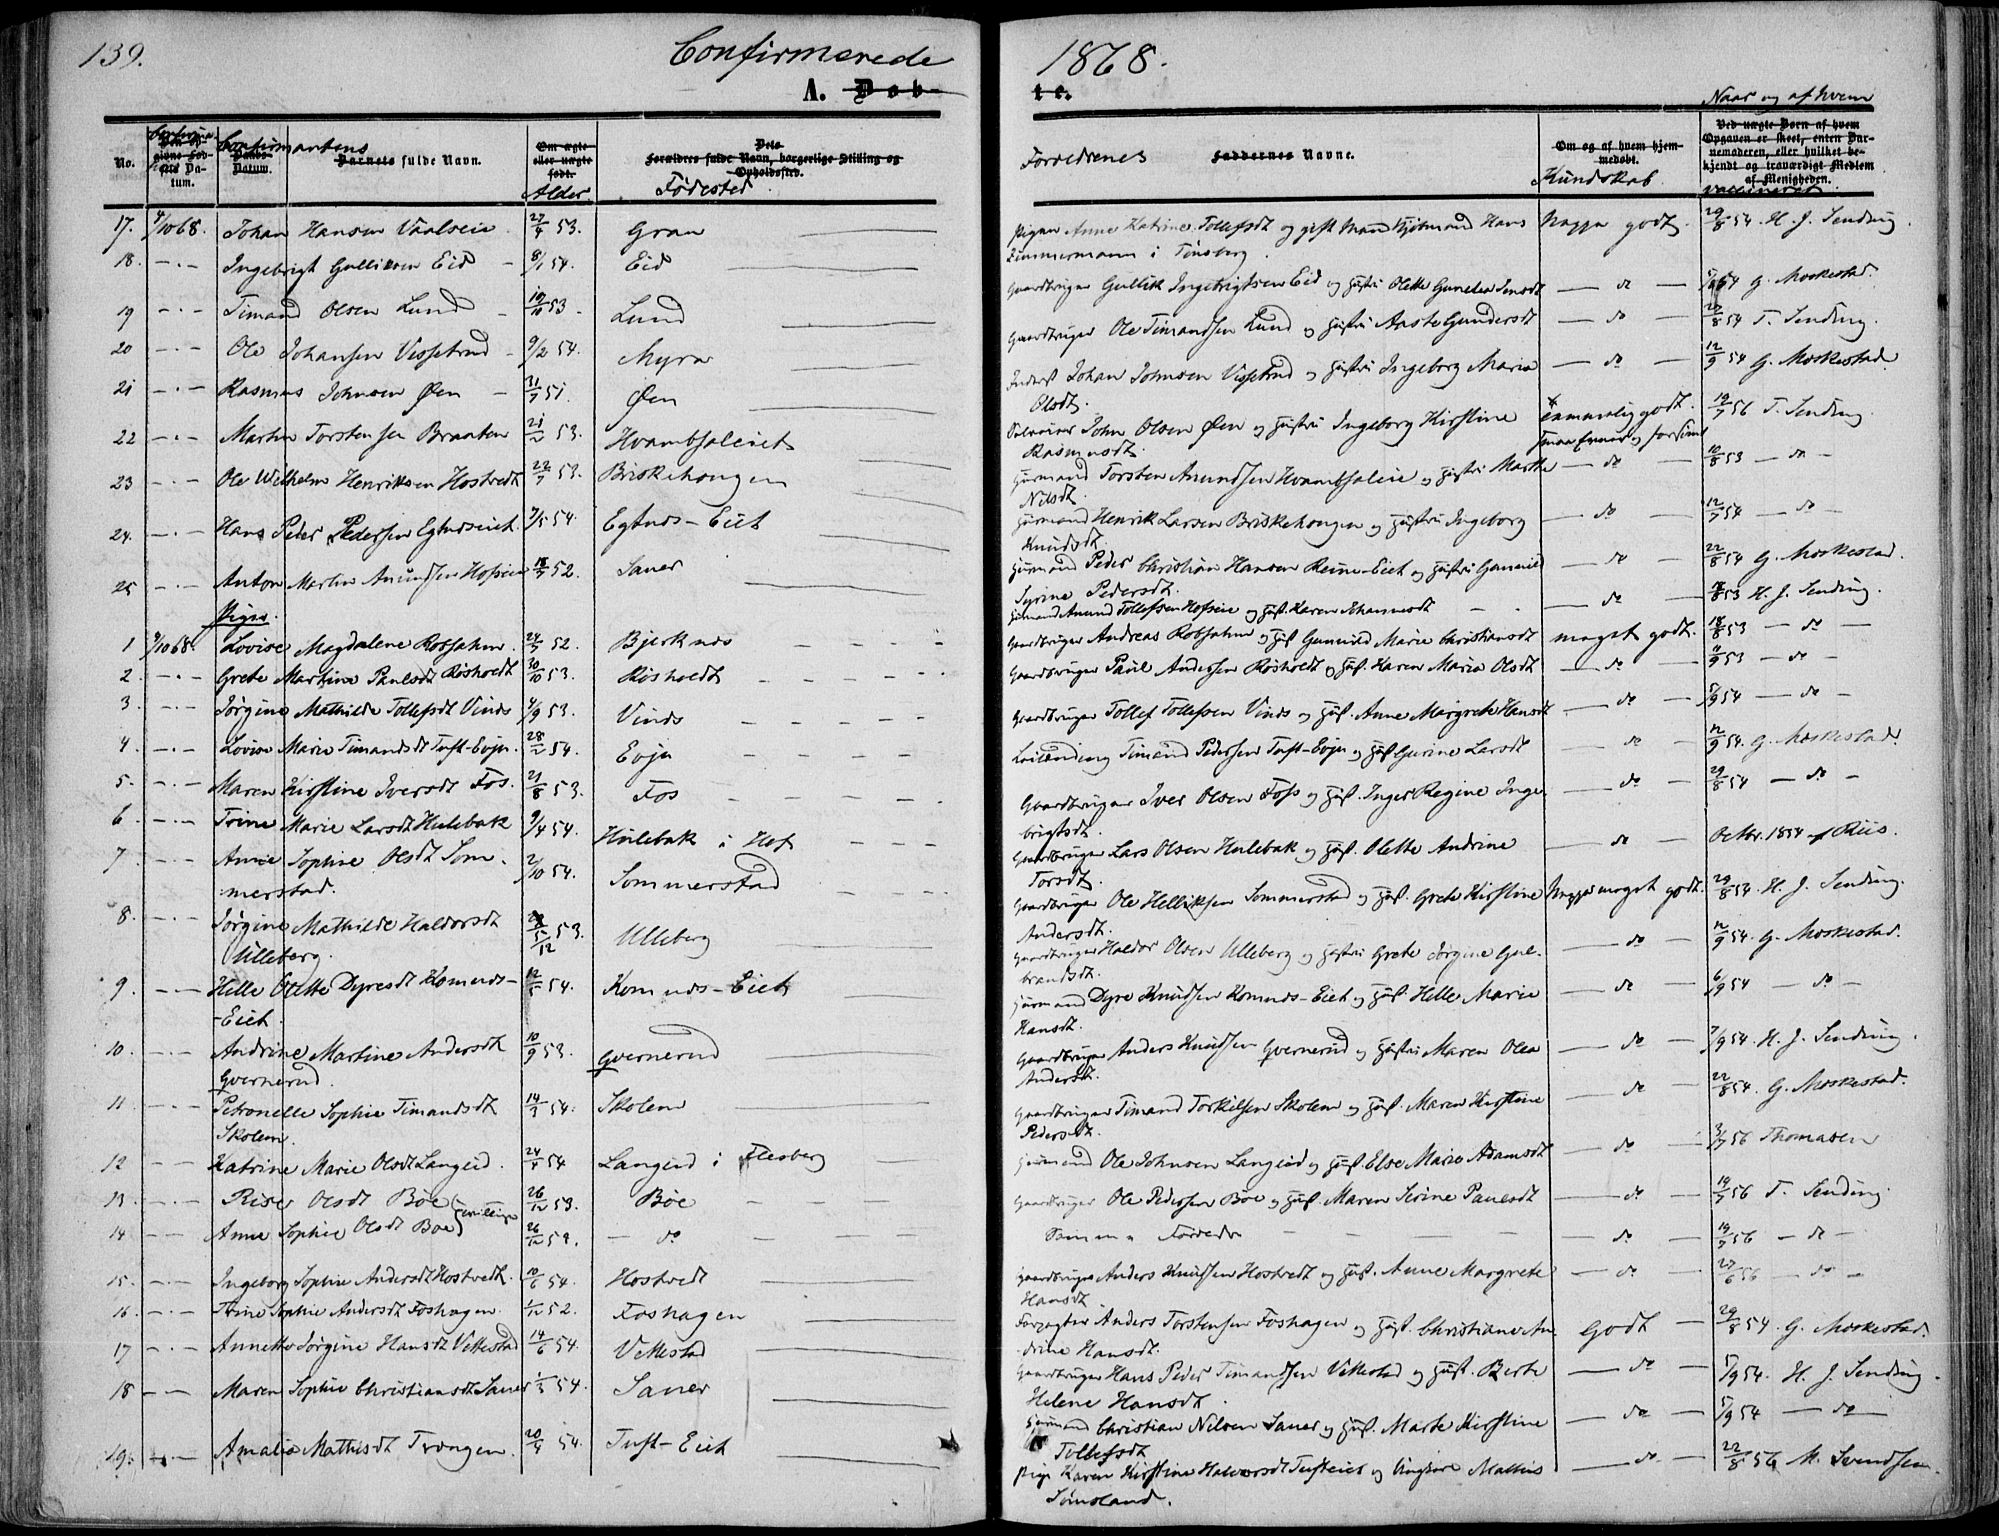 139. Confirmerede 1868.
A. Døb- te.
Naar og af hvem
No.
Confirmantens
Barnets fulde Navn.
Om ægte eller uægte født.
Alder.
Dets Forældres fulde Navn, borgerlige Stilling og Opholdssted.
Fødested
Forældrenes
Faddernes Navne.
Om og af hvem hjemmedøbt.
Kundskab
Ved uægte Børn af hvem Opgaven er skeet, enten Barnemoderen, eller hvilket bekjendt og troværdigt Medlem af Menigheden.
vaccineret.
17. 4/10 68. Johan Hansen Vaalseie 27/4 53. Gran
Pigen Anne Katrine Tollefsdt og gift Mand Hans Nogsaa godt. 29/8 54. H. J. Sending.
Zimmermann i Tønsberg.
18. — Ingebrigt Gulliksen Eid 8/1 54. Eid
Gaardbruger Gullik Ingebrigtsen Eid og Hustru Olette — do — G. Moskestad.
19 — Timand Olsen Lund 19/10 53. Lund
Gaardbruger Ole Timandsen Lund og Hustru Aaste Gundersdt — do — 22/8 54 T. Sending.
20 — Ole Johansen Vissebrud 9/2 54. Myra
Inderst Johan Johnsen Vissebrud og Hustru Ingeborg Maria — do — 12/9 54 G. Moskestad.
Olsdt.
21 — Rasmus Johnsen Øen 21/7 51. Øen
John Olsen Øen og Hustru Ingeborg Kirstine temmelig godt. 19/7 56 T. Sending.
Rasmusdt.
22 — Martin Torstensen Braaten 21/12 53. Hvambsaleiet
Huusmand Torsten Amundsen Hvambsaleie og Hustru Marthe — do — 10/8 53 — do —
Nilsdt.
23 — Ole Wilhelm Henriksen Hostvedt 22/7 53. Briskehougen
Huusmand Henrik Larsen Briskehougen og Hustru Ingeborg — do — 12/7 54 — do —
Knudsdt.
24. — Hans Peder Pedersen Egtndseiet. 7/5 54. Egtnds-Eiet
Huusmand Peder Christian Hansen Reine-Eiet og Hustru Gunnild — do — 22/8 54 G. Moskestad.
Syrine Pedersdt.
25 — Anton Martin Anundsen Hofseie 18/7 52. Sauer
Huusmand Anund Tollefsen Hofseie og Hust. Karen Johannesdt — do — 8/8 53 H. J. Sending.
Piger.
1 4/10 68. Lovise Magdalene Robsahm. 24/7 52. Bjerknes
Gaardbruger Andreas Robsahm og Hust. Gunnild Marie Christiansdt meget godt. 18/8 53 — do —
2. — Grete Martine Paulsdt Røsholdt 30/10 53. Røsholdt
Gaardbruger Paul Andersen Røsholdt og Hust. Karen Maria Olsdt — do — 9/9 53 — do —
3. — Jørgine Mathilde Tollefsdt Vinds 4/9 53. Vinds
Gaardbruger Tollef Tollefsen Vinds og Hust. Anne Margrete Hansdt — do — 5/9 54 — do —
4. — Lovise Marie Timandsdt Tuft-Evju. 28/2 54. Evju
Leilænding Timand Pedersen Tuft-Evju og Hust Gurine Larsdt — do — 12/9 54. G. Moskestad.
5. — Maren Kirstine Iversdt Fos. 21/8 53. Fos
Gaardbruger Iver Olsen Foss og Hust. Inger Regine Inge- — do — 29/8 54 — do —
brigtsdt.
6 — Trine Marie Larsdt Hulebak 9/4 54. Hulebak i Hof
Gaardbruger Lars Olsen Hulebak og Hust. Olette Andrine — do — Octbr. 1854 af Riis.
Torsdt.
7. — Anne Sophie Olsdt Som- 2/10 54. Sommerstad
merstad.
Gaardbruger Ole Helliksen Sommerstad og Hust. Grete Kirstine Nogsaa meget godt. 29/8 54. H. J. Sending.
Andersdt.
8. — Jørgine Mathilde Haldorsdt 5/12 53. Ulleberg
Ulleberg.
Gaardbruger Haldor Olsen Ulleberg og Hustru Grete Jørgine Gul- — do — 12/9 54. G. Moskestad.
brandsdt.
9. — Helle Olette Dyresdt Komnds- 12/5 54. Komnds-Eiet
-Eiet.
Huusmand Dyre Knudsen Komnds-Eiet og Hust Helle Marie — do — 6/9 54 — do —
Hansdt.
10. — Andrine Martine Andersdt 10/9 53. Gvernerud
Gvernerud.
Gaardbruger Anders Knudsen Gvernerud og Hustru Maren Olea — do — 7/9 54. H. J. Sending.
Andersdt.
11. — Petronelle Sophie Timandsdt 14/3 54. Skolem
Skolem.
Gaardbruger Timand Torkilsen Skolem og Hust. Maren Kirstine — do — 22/8 54. G. Moskestad.
Pedersdt.
12 — Katrine Marie Olsdt Langeid. 24/4 54 Langeid i Flesberg
Huusmand Ole Johnsen Langeid og Hust. Else Marie Adamsdt — do — 3/7 56 Thomasen
13. — Rise Olsdt Bøe (Tvillinger 26/12 53. Bøe
Gaardbruger Ole Pedersen Bøe og Hust. Maren Serine Paulsdt — do — 19/7 56 T. Sending.
14 — Anne Sophie Olsdt Bøe) 26/12 53. — do —
Samme Forældre — do — 19/7 56 — do —
15. — Ingeborg Sophie Andersdt Hostvedt. 10/6 54. Hostvedt
Gaardbruger Anders Knudsen Hostvedt og Hust. Anne Margrete — do — 27/6 56 — do —
Hansdt
16. — Trine Sophie Andersdt Foshagen. 1/12 52. Foshagen
Forpagter Anders Torstensen Foshagen og Hust. Christiane An- Godt — 29/8 54. G. Moskestad.
drine Hansdt.
17 — Annette Jørgine Hansdt Vettestad 14/6 54. Vettestad
Gaardbruger Hans Peder Timandsen Vettestad og Hust. Berte — do — 5/9 54. H. J. Sending.
Helene Hansdt.
18 — Maren Sophie Christiansdt Sauer 1/3 54. Sauer
Huusmand Christian Nilsen Sauer og Hust. Marte Kirstine — do — 5/9 54 — do —
Tollefsdt
19. — Amalia Mathisdt Trongen. 20/4 54. Tuft-Eiet
Pige Karen Kirstine Halvorsdt Tufteiet og Ungkarl Mathis — do — 22/8 56 M. Svendsen.
Jømsland.